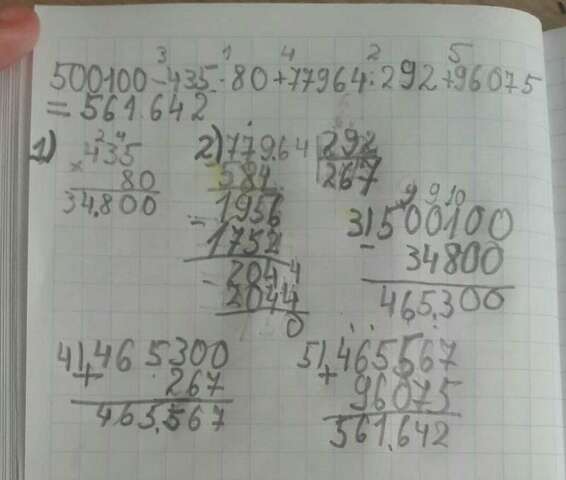 3 1 4 2 5
500100-435·80+77964:292+96075
=561.642
1) 2 4
×435
80
34.800
2) 77964 | 292
584 | 267
1956
-1752
2044
-2044
0
3) 9 9 10
-500100
34800
465.300
4) 465300
+267
465.567
5) 465567
+96075
561.642